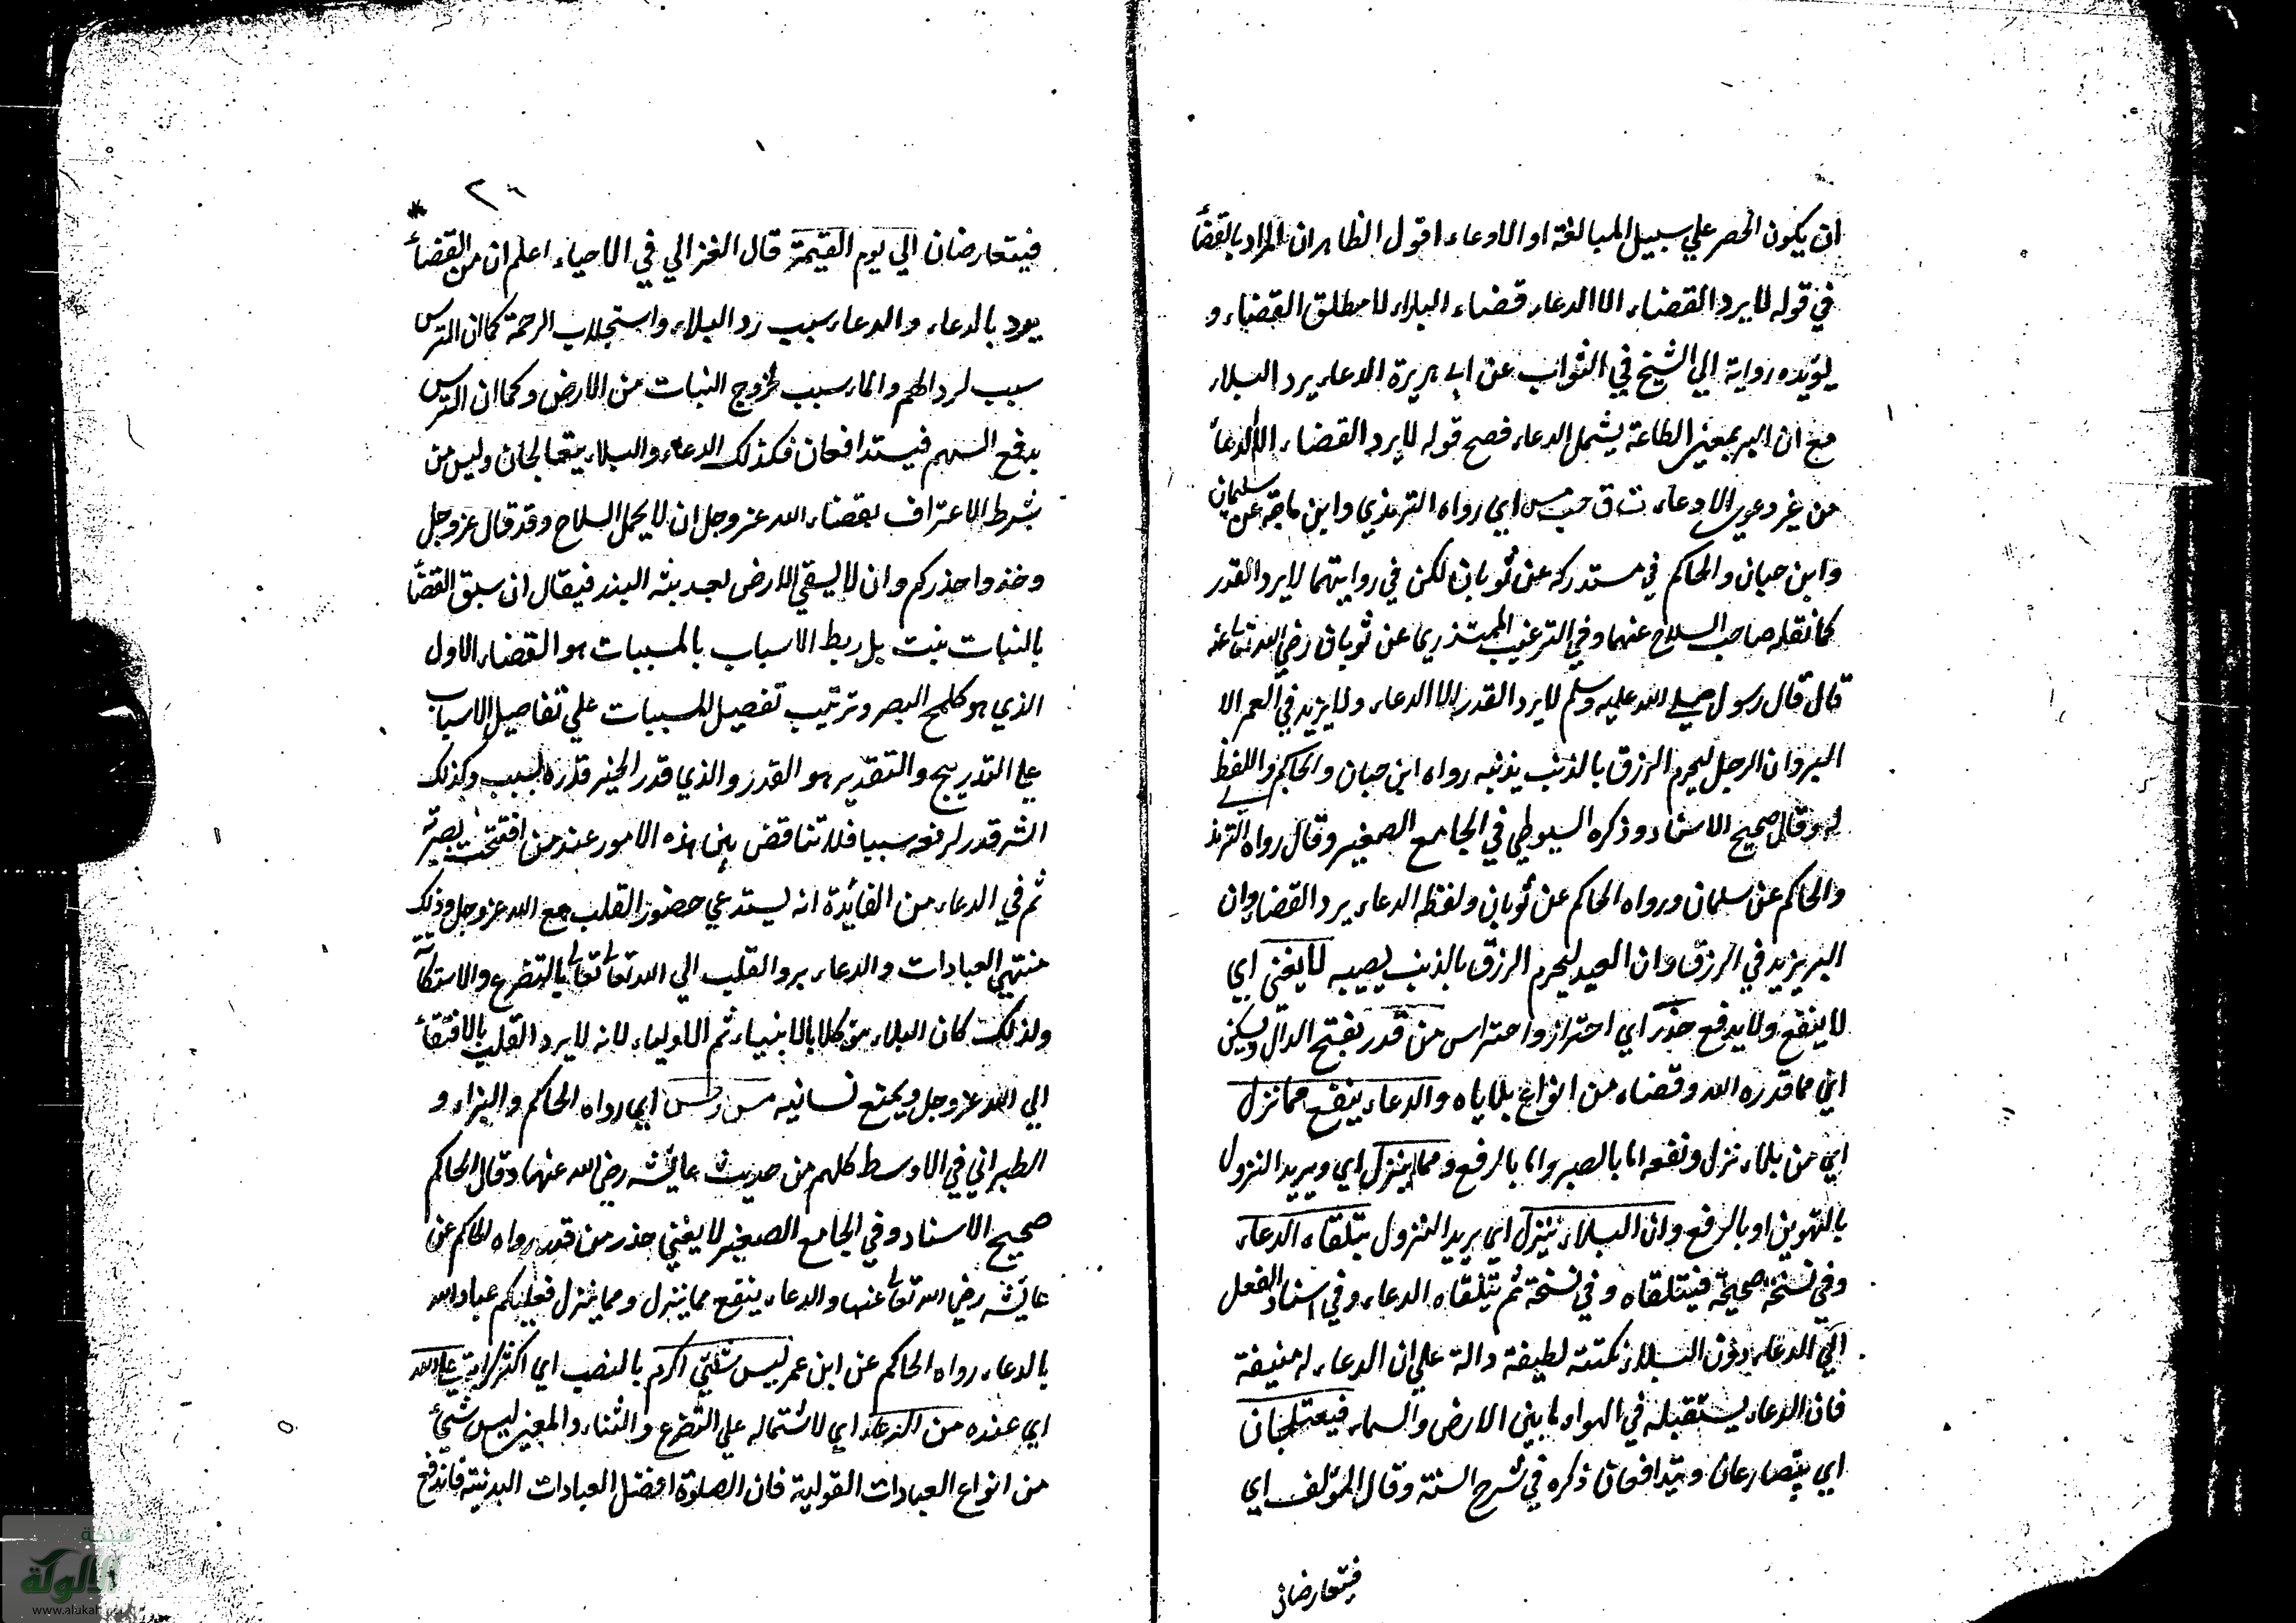 ان يكون الحصر علي سبيل المبالغة او الادعاء اقول الظاهر ان المراد بالقضأ
في قوله لا يرد القضاء الا الدعاء قضاء البلاء لا مطلق القضاء و
يؤيده رواية ابي الشيخ في الثواب عن ابي هريرة الدعاء يرد البلاء
مع ان البر بمعنى الطاعة يشمل الدعاء فصح قوله لا يرد القضاء الا الدعأ
من غير دعوى الادعاء ت ق حب مس اي رواه الترمذي وابن ماجة عن سليمان
وابن حبان والحاكم في مستدركه عن ثوبان لكن في روايتهما لا يرد القدر
كما نقله صاحب السلاح عنهما وفي الترغيب للمنذري عن ثوبان رضي الله تعا عنه
قال قال رسول صلي الله عليه وسلم لا يرد القدر الا الدعاء ولا يزيد في العمر الا
البر وان الرجل ليحرم الرزق بالذنب يذنبه رواه ابن حبان والحاكم واللفظ
له وقال صحيح الاسناد وذكره السيوطي في الجامع الصغير وقال رواه الترمذي
والحاكم عن سلمان ورواه الحاكم عن ثوبان ولفظه الدعاء يرد القضاء وان
البر يزيد في الرزق وان العبد ليحرم الرزق بالذنب يصيبه لا يغني اي
لا ينفع ولا يدفع حذر اي احتراز واحتراس من قدر بفتح الدال ويسكن
اي مما قدره الله وقضاه من انواع بلاياه والدعاء ينفع مما نزل
اي من بلاء نزل ونفعه اما بالصبر واما بالرفع ومما لم ينزل اي ويريد النزول
بالتهوين او بالرفع وان البلاء ينزل اي يريد النزول يتلقاه الدعاء
وفي نسخة صحيحة فيتلقاه وفي نسخة ثم يتلقاه الدعاء وفي اسناد الفعل
الي الدعاء دون البلاء نكتة لطيفة دالة علي ان الدعاء له منيفة
فان الدعاء يستقبله في الهواء ما بين الارض والسماء فيعتلجان
اي يتصارعان ويتدافعان ذكره في شرح السنة وقال المؤلف اي
فيتعارضان
٢٦
فيتعارضان الي يوم القيمة قال الغزالي في الاحياء اعلم ان من القضأ
يرد بالدعاء والدعاء سبب رد البلاء واستجلاب الرحمة كما ان الترس
سبب لرد السهم والماء سبب لخروج النبات من الارض وكما ان الترس
يدفع السهم فيتدافعان فكذلك الدعاء والبلاء يتعالجان وليس من
شرط الاعتراف بقضاء الله عز وجل ان لا يحمل السلاح وقد قال عز وجل
وخذوا حذركم وان لا يسقي الارض بعد بثه البذر فيقال ان سبق القضأ
بالنبات نبت بل ربط الاسباب بالمسببات هو القضاء الاول
الذي هو كلمح البصر وترتيب تفصيل المسببات علي تفاصيل الاسباب
علي التدريج والتقدير هو القدر والذي قدر الخير قدره بسبب وكذلك
الشر قدر لرفعه سببا فلا تناقض بين هذه الامور عند من افتتحت بصيرته
ثم في الدعاء من الفائدة انه يستدعي حضور القلب مع الله عز وجل وذلك
منتهي العبادات والدعاء يرد القلب الي الله تعالى تعا بالتضرع والاستكانة
ولذلك كان البلاء موكلا بالانبياء ثم الاولياء لانه لا يرد القلب بالافتقأ
الي الله عز وجل ويمنع نسانيه مس ر طس اي رواه الحاكم والبزاء و
الطبراني في الاوسط كلهم من حديث عائشه رضي الله عنها وقال الحاكم
صحيح الاسناد وفي الجامع الصغير لا يغني حذر من قدر رواه الحاكم عن
عائشه رضي الله تعالى عنها والدعاء ينفع مما ينزل ومما ينزل فعليكم عباد الله
بالدعاء رواه الحاكم عن ابن عمر ليس شئ اكرم بالنصب اي اكثر كرامة على الله
اي عنده من الدعاء اي لاشتماله علي التضرع والثناء والمعنى ليس شئ
من انواع العبادات القولية فان الصلوة افضل العبادات البدنية فاندفع
شبكة
الألوكة
www.alukah.net